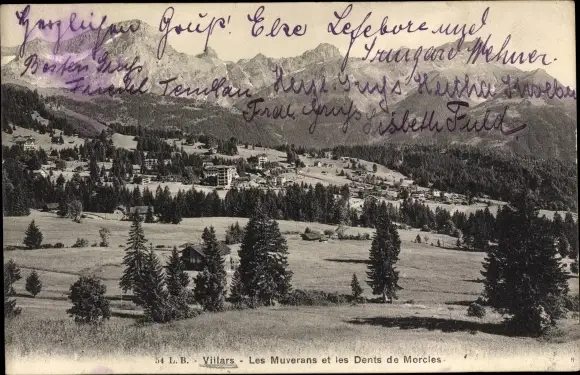 Herzlichen Gruß! Else Lefebore und
Irmgard Wehner.
Besten Gruß Herzl. Grüs Hertha
Friedel Frdl. Gruß
Lisbeth Fuld
54 L. B. - Villars - Les Muverans et les Dents de Morcles